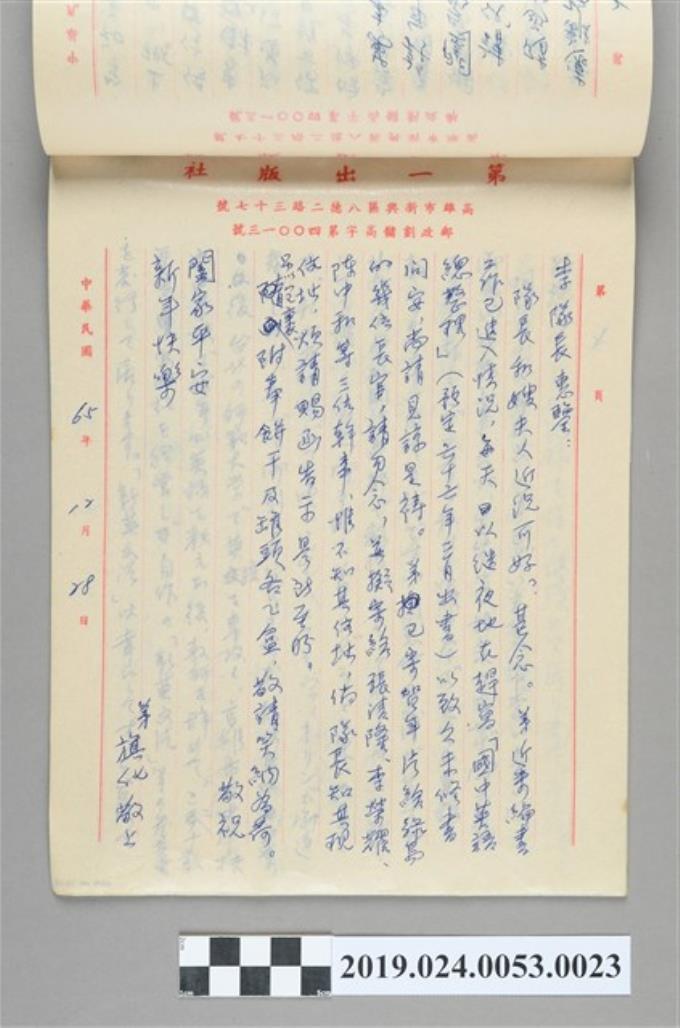 第一出版社
高雄市新興區八德二路三十七號
郵政劃儲高字第四〇〇一三號
第 頁
李隊長惠鑒：
隊長和嫂夫人近況可好？甚念。弟近來編書
工作已進入情況，每天日以繼夜地在趕寫「國中英語
總整理」（預定六十六年三月出書）以致久未修書
問安，尚請見諒是禱。弟已寄賀年片給綠島
的幾位長官，請勿念，並擬寄給張清隆、李榮耀、
陳中和等三位幹事，惟不知其住址，倘隊長知其現
住址，煩請賜函告示是所至盼。
隨函附奉餅干及罐頭各乙盒，敬請笑納為荷。
敬祝
闔家平安
新年快樂
弟 旗化敬上
中華民國 65 年 12 月 28 日
2019.024.0053.0023